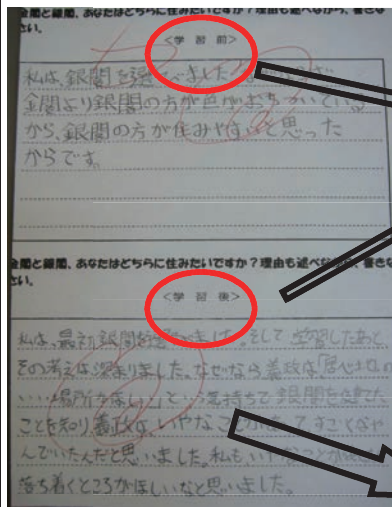 金閣と銀閣、あなたはどちらに住みたいですか?理由も述べながら、書きな
さい。
<学習前>
私は、銀閣を選びました。
金閣より銀閣の方が色がおちついている
から、銀閣の方が住みやすいと思った
からです。
金閣と銀閣、あなたはどちらに住みたいですか?理由も述べながら、書きな
さい。
<学習後>
私は、最初銀閣を選びました。そして学習したあと、
その考えは深まりました。なぜなら義政は「居心地の
いい場所がほしい」という気持ちで銀閣を建てた
ことを知り、義政は、いやなことがあって、すごくなや
んでいたんだと思いました。私も、いやなことがあ
落ち着くところがほしいなと思いました。